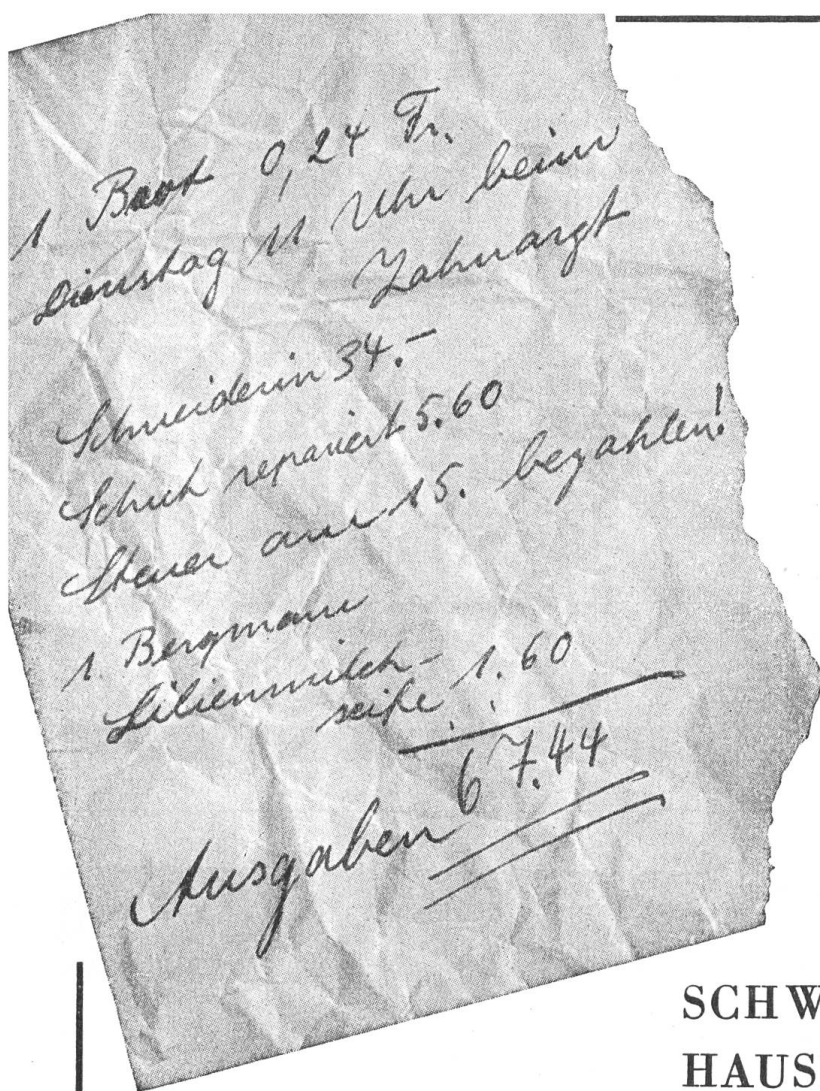 1 Brot 0,24 Fr.
Dienstag 11 Uhr beim
Zahnarzt
Schneiderin 34.–
Schuh repariert 5.60
Steuer am 15. bezahlen!
1. Bergmann
Lilienmilch-
seife 1.60
Ausgaben 67.44
SCHW
HAUS